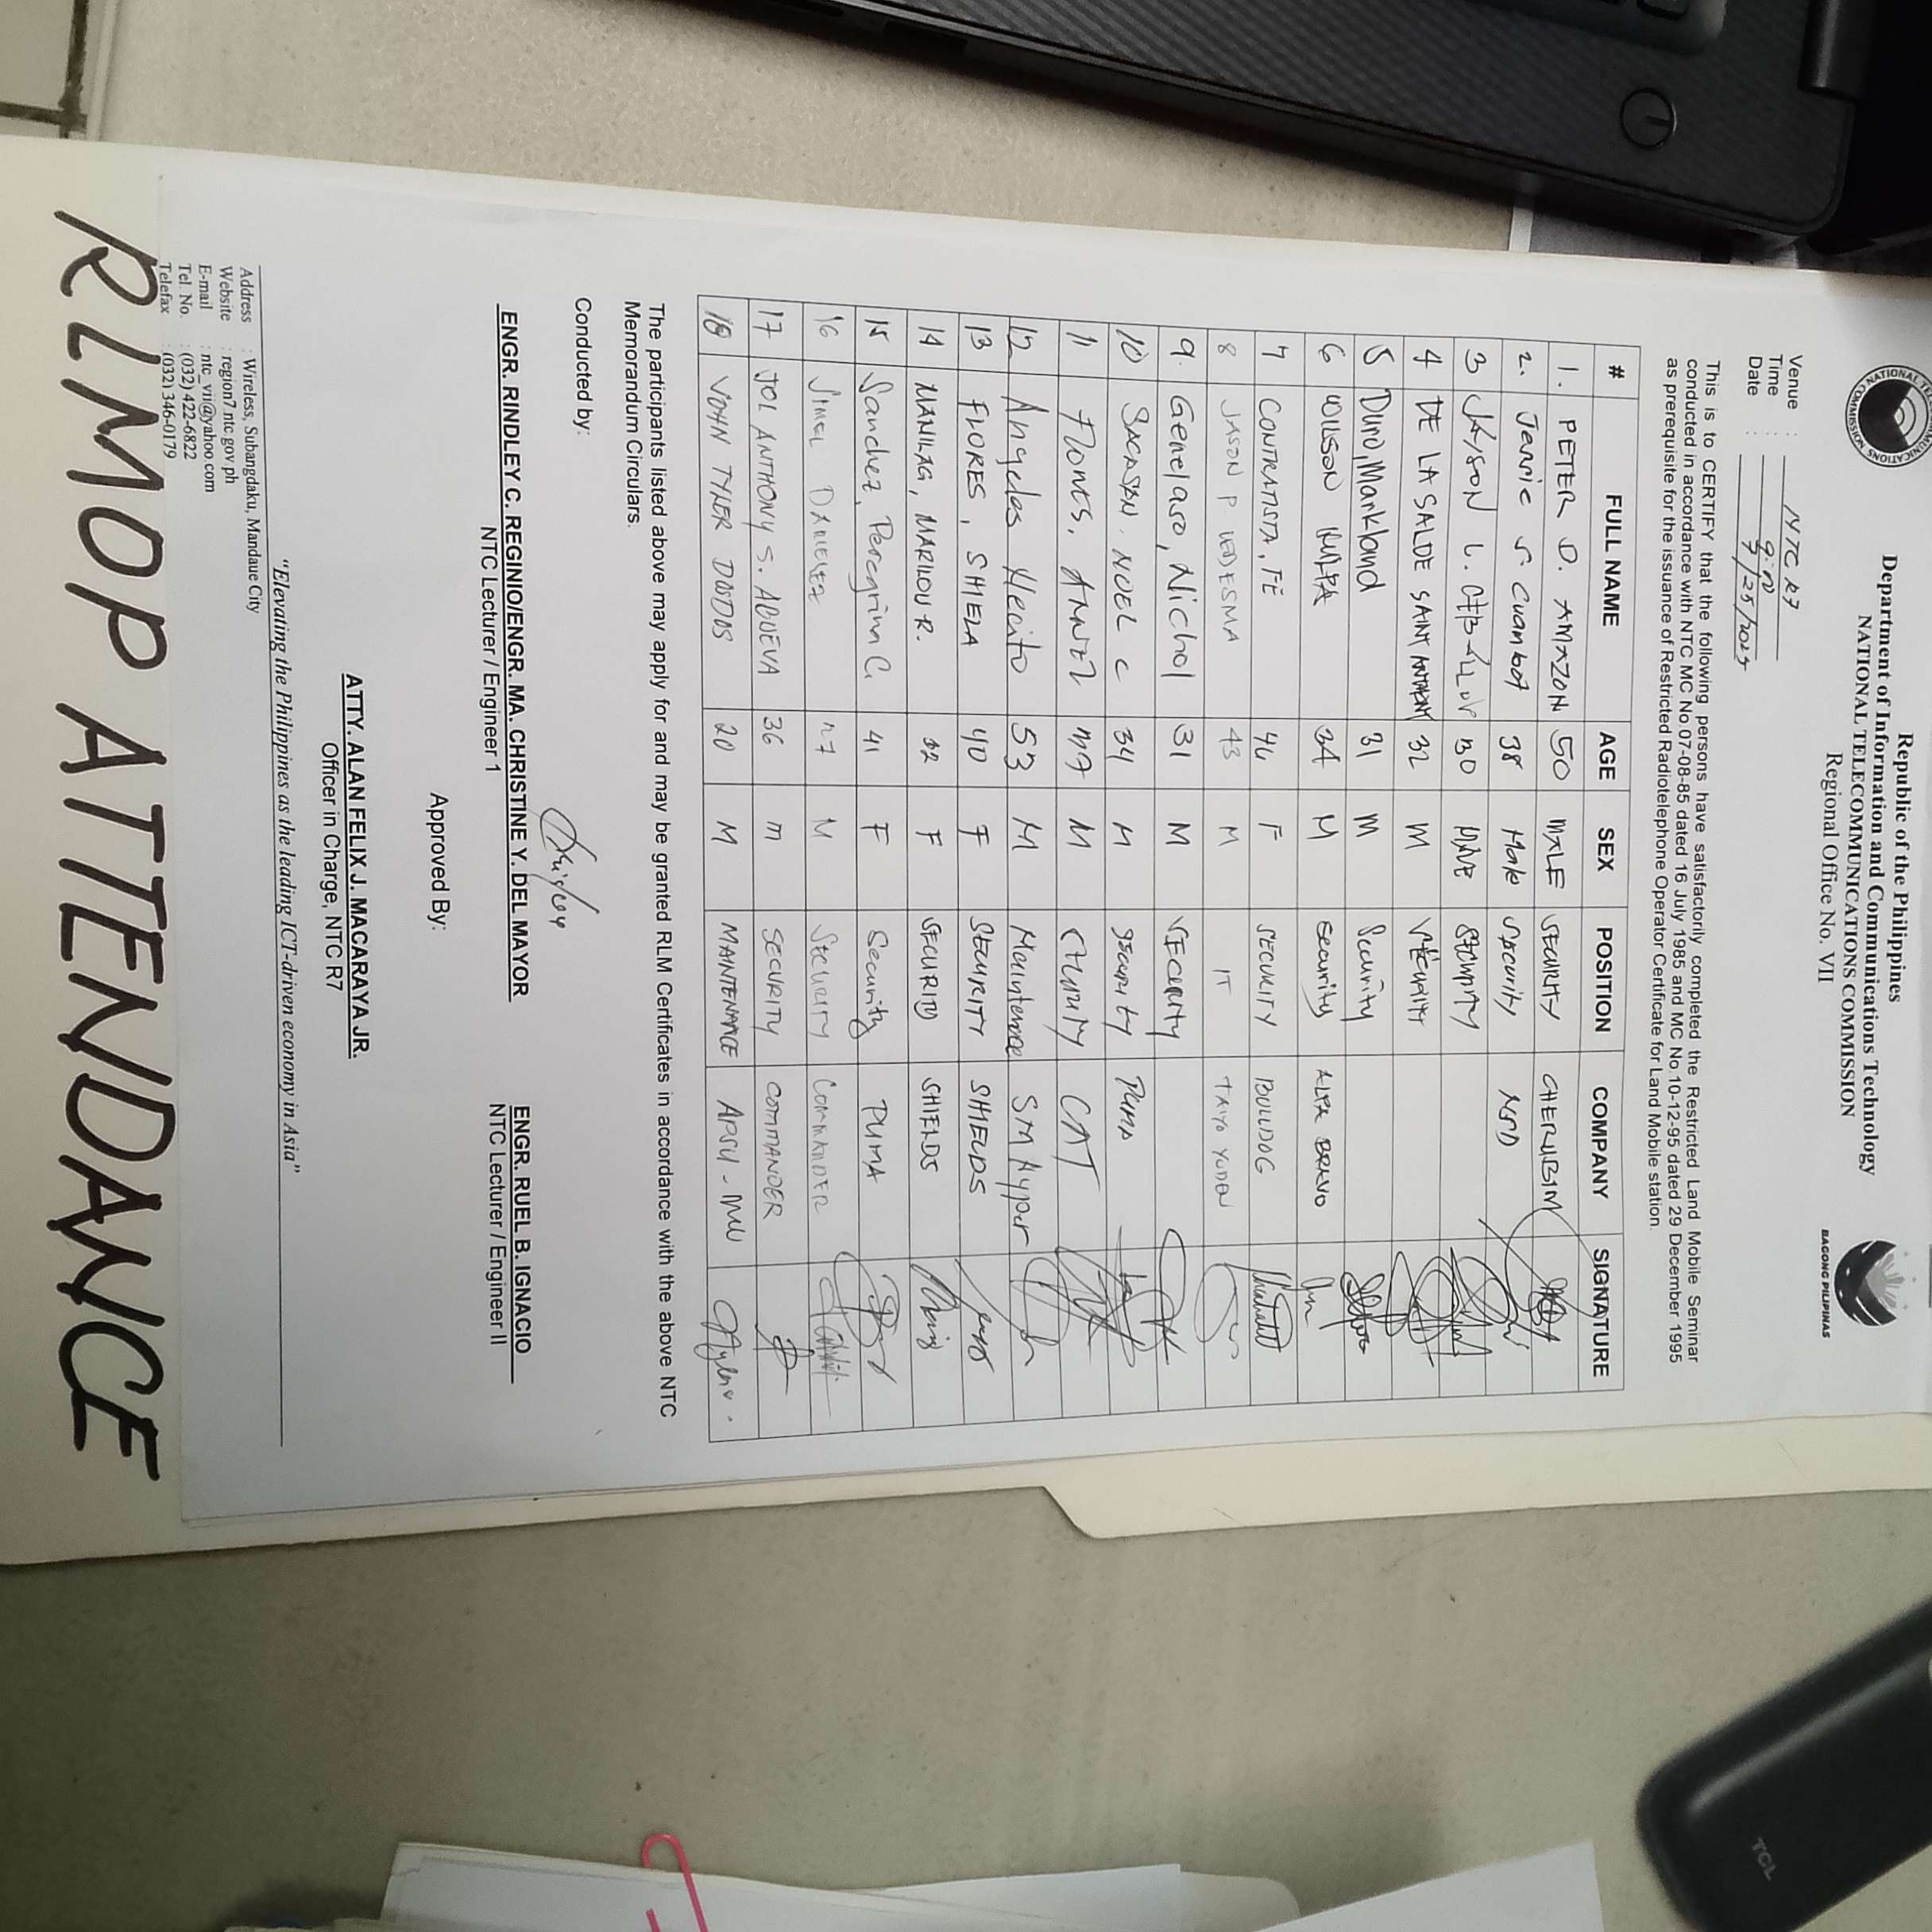 Republic of the Philippines
Department of Information and Communications Technology
NATIONAL TELECOMMUNICATIONS COMMISSION
Regional Office No. VII
BAGONG PILIPINAS
Venue : NTC R7
Time :
Date :
This is to CERTIFY that the following persons have satisfactorily completed the Restricted Land Mobile Seminar
conducted in accordance with NTC MC No.07-08-85 dated 16 July 1985 and MC No.10-12-95 dated 29 December 1995
as prerequisite for the issuance of Restricted Radiotelephone Operator Certificate for Land Mobile station.
# FULL NAME AGE SEX POSITION COMPANY SIGNATURE
1. PETER D. AMAZON 50 MALE SECURITY CHERUBIM
2. Jansic S. Cuambot 38 Male Security NSD
3 JAYSON L. 30 MALE SECURITY
4 DE LA SALDE SAINT ANTHONY 32 M SECURITY
5 Duro, Markland 31 M Security
6 WILSON 34 M Security ALPA BRAVO
7 CONTRATISTA, FE 46 F SECURITY BULLDOG
8 JASON P LEDESMA 43 M IT TAIYO YUDEN
9. Genelaso, Nichol 31 M SECURITY
10 SACASAN, NOEL C 34 M Security PUMA
11 Flores, 37 M SECURITY CAT
12 Angeles Hecito 53 M Maintenance SM Hyper
13 FLORES, SHIELA 40 F SECURITY SHIELDS
14 MANILAG, MARILOU R. 32 F SECURITY SHIELDS
15 Sanchez, Peregrina C. 41 F Security PUMA
16 27 M SECURITY COMMANDER
17 JOL ANTHONY S. ABUEVA 36 m SECURITY COMMANDER
18 JOHN TYLER DOSDOS 20 M MAINTENANCE
The participants listed above may apply for and may be granted RLM Certificates in accordance with the above NTC
Memorandum Circulars.
Conducted by:
ENGR. RINDLEY C. REGINIO/ENGR. MA. CHRISTINE Y. DEL MAYOR ENGR. RUEL B. IGNACIO
NTC Lecturer / Engineer 1 NTC Lecturer / Engineer II
Approved By:
ATTY. ALAN FELIX J. MACARAYA JR.
Officer in Charge, NTC R7
"Elevating the Philippines as the leading ICT-driven economy in Asia"
Address : Wireless, Subangdaku, Mandaue City
Website : region7.ntc.gov.ph
E-mail : ntc_vii@yahoo.com
Tel. No. : (032) 422-6822
Telefax : (032) 346-0179
RLMOP ATTENDANCE
TCL